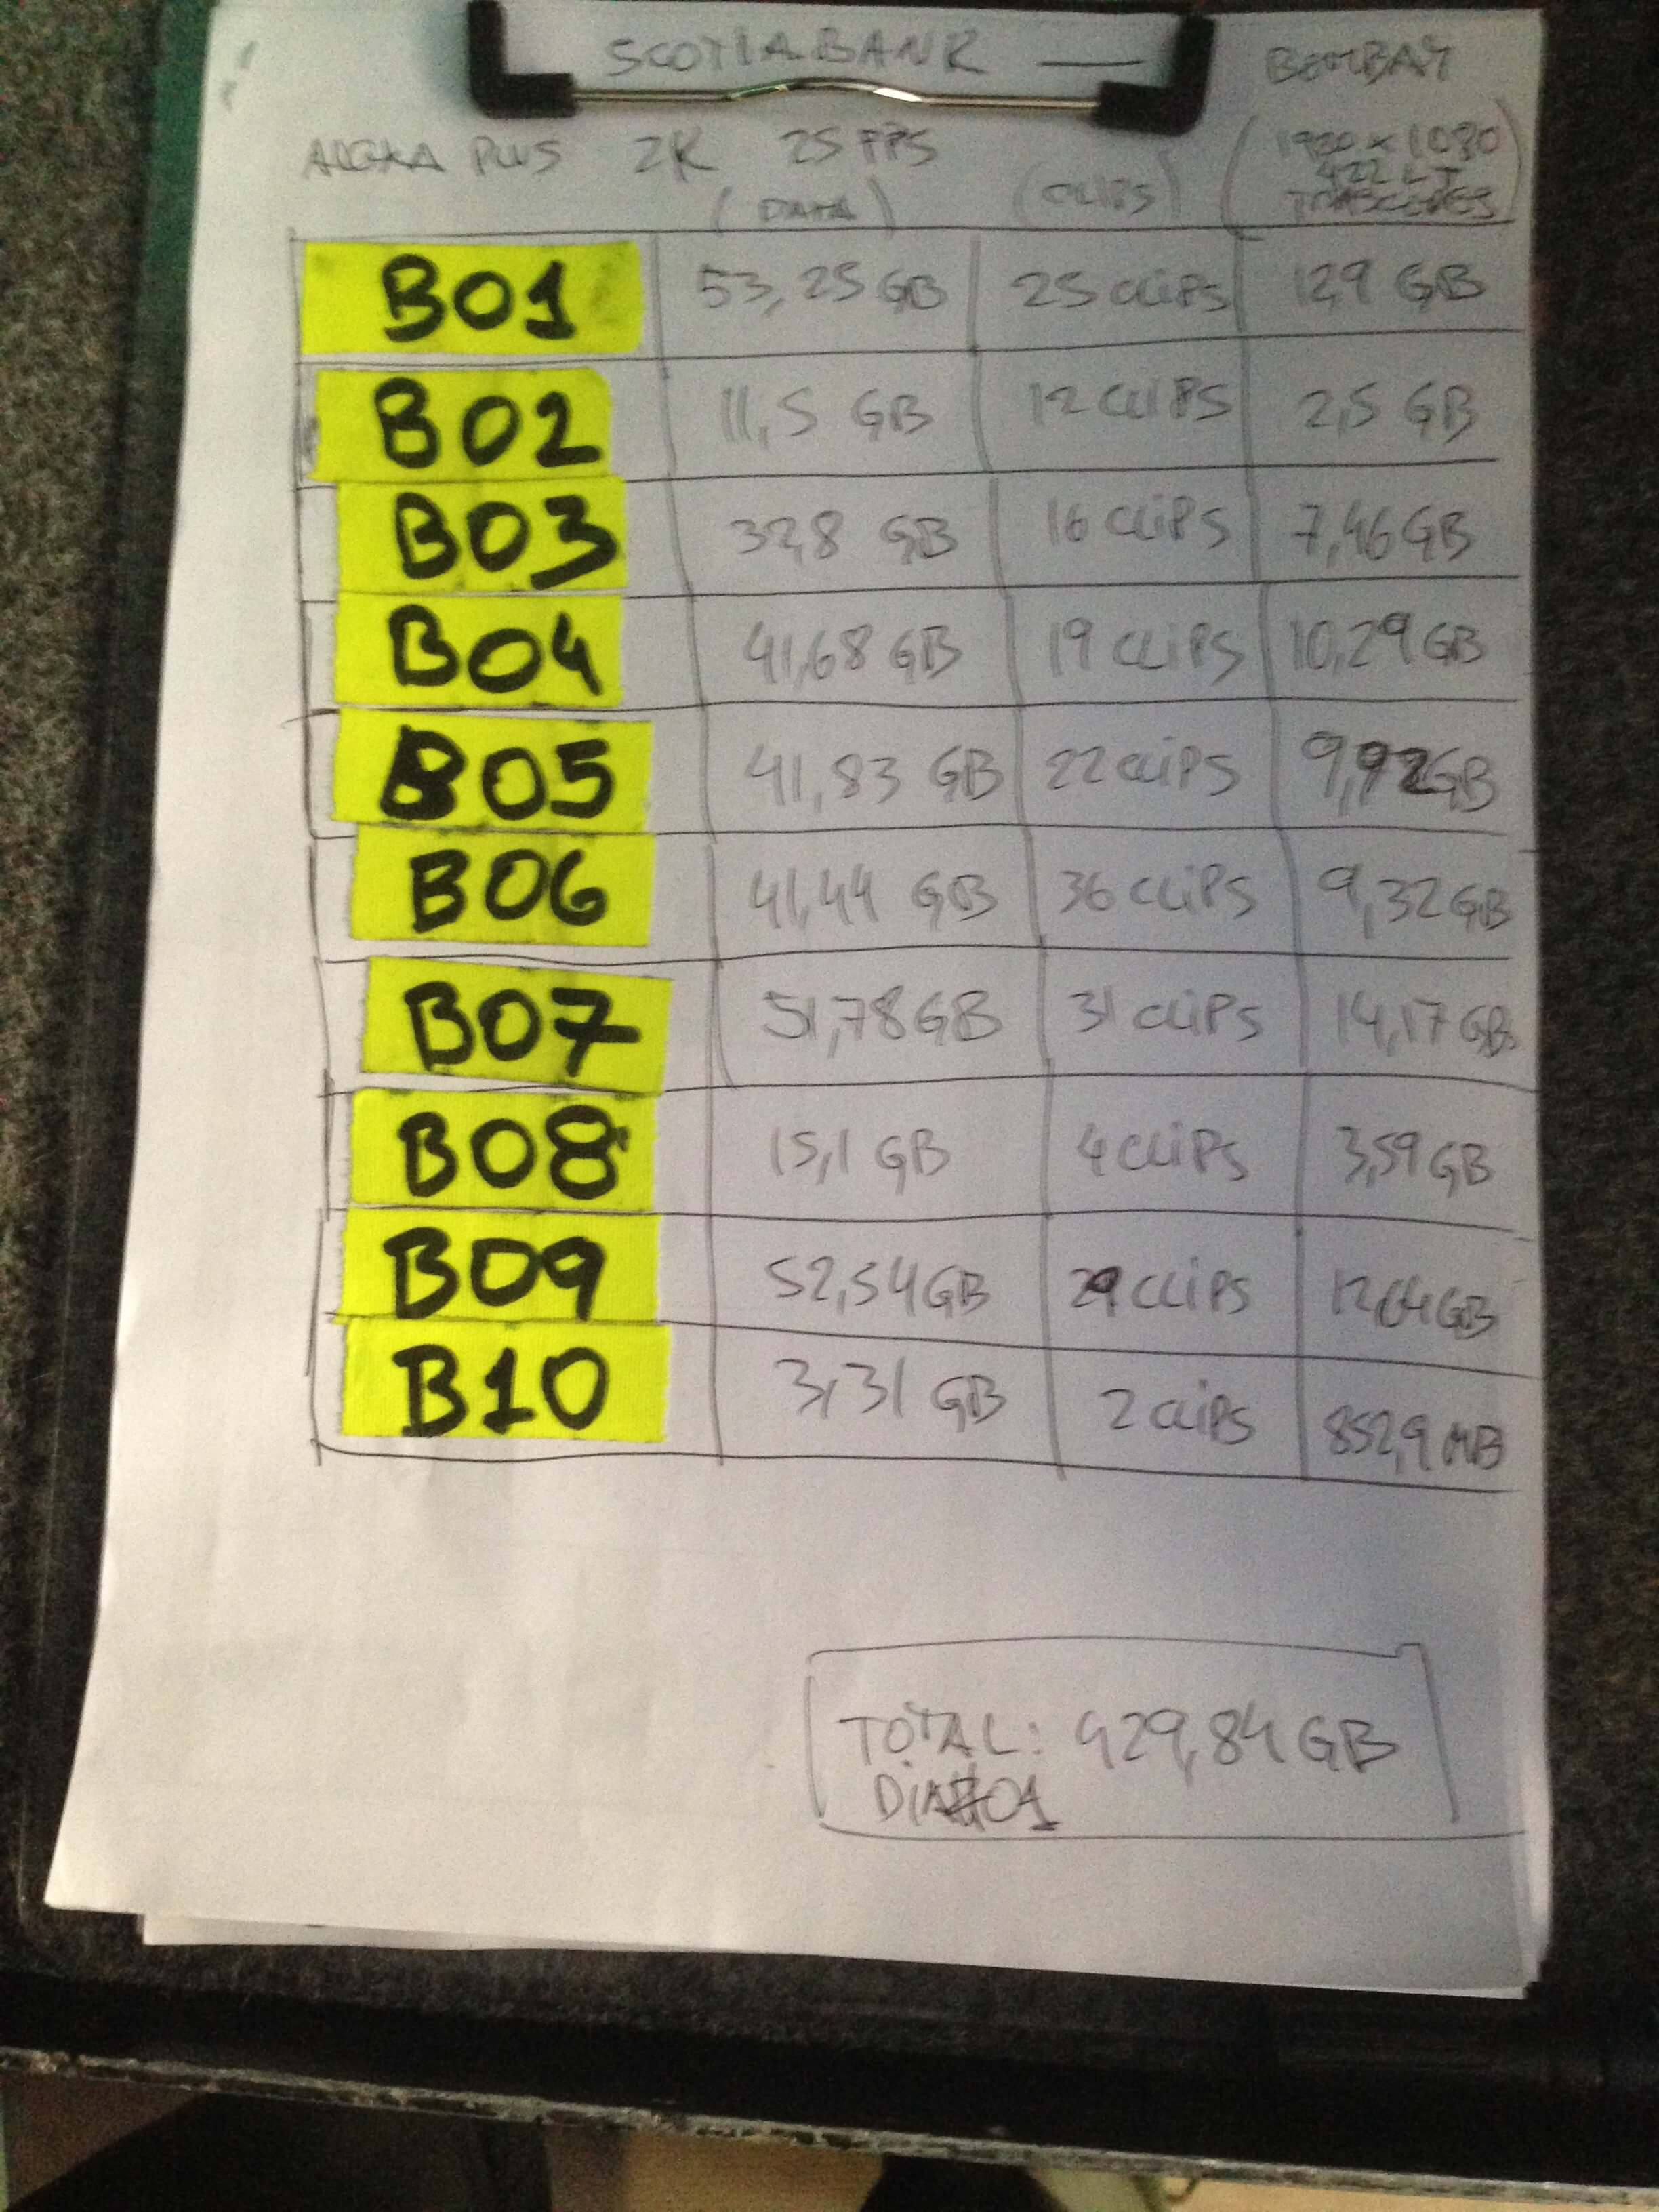 SCOTIABANK — BOMBAY
ALEXA PLUS 2K 25 FPS
(DATA) (CLIPS) (1920 x 1080
422 LT
B01 53,25 GB 25 CLIPS 12,9 GB
B02 11,5 GB 12 CLIPS 2,5 GB
B03 32,8 GB 16 CLIPS 7,46 GB
B04 41,68 GB 19 CLIPS 10,29 GB
B05 41,83 GB 22 CLIPS 9,92 GB
B06 41,44 GB 36 CLIPS 9,32 GB
B07 51,78 GB 31 CLIPS 14,17 GB
B08 15,1 GB 4 CLIPS 3,59 GB
B09 52,54 GB 29 CLIPS 12,64 GB
B10 3,31 GB 2 CLIPS 852,9 MB
TOTAL: 429,84 GB
DIA 01